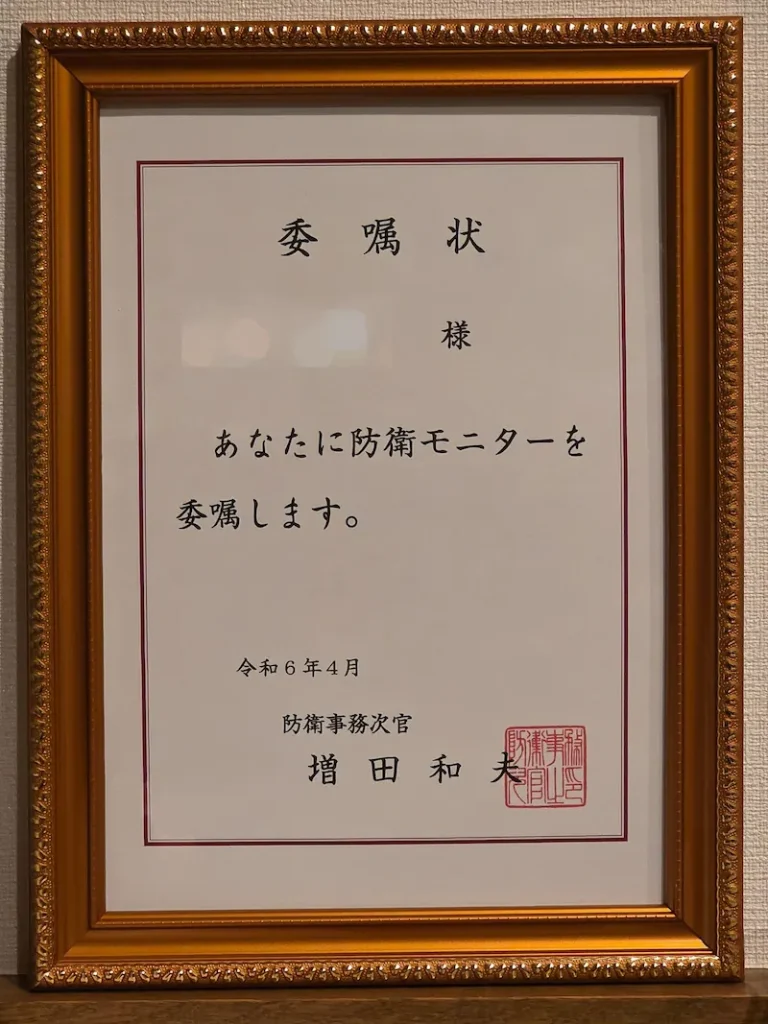 委嘱状
様
あなたに防衛モニターを
委嘱します。
令和6年4月
防衛事務次官
増田和夫